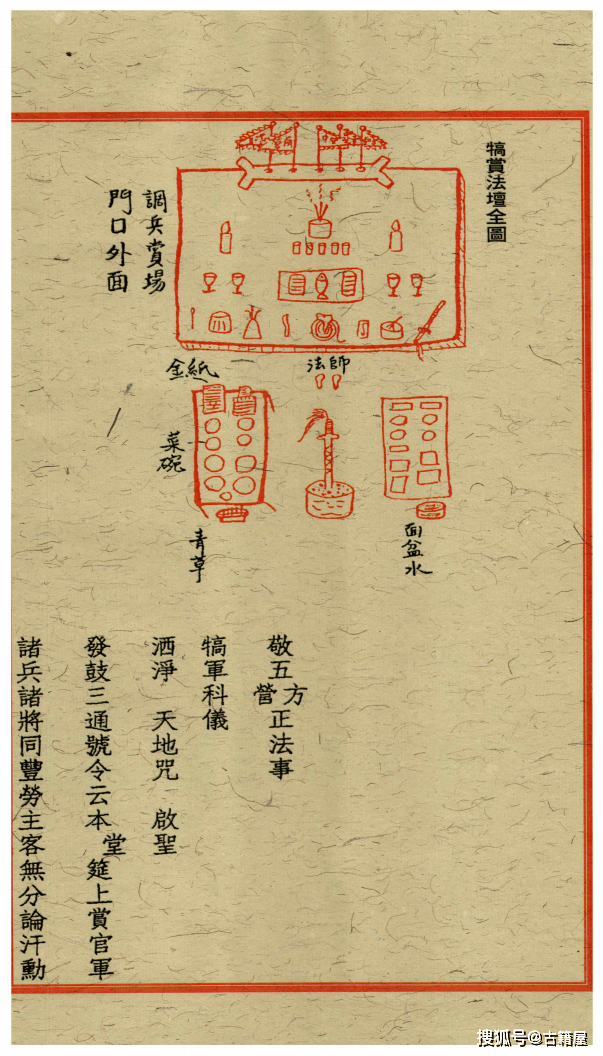 犒賞法壇全圖
調兵賞場
門口外面
法師
金紙
菜碗
青草
面盆水
敬五方營正法事
犒軍科儀
洒淨 天地咒 啟聖
發鼓三通號令云本堂筵上賞官軍
諸兵諸將同豐勞主客無分論汗勳
搜狐号@古籍屋